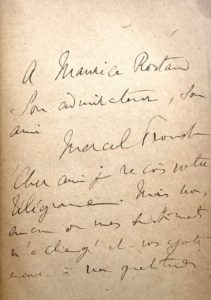 A Maurice Rostand
Son admirateur, son
ami
Marcel Proust
Cher ami je reçois votre
télégramme. Mais non,
aucun de mes sentiments
n'a changé et
à ma gratitude